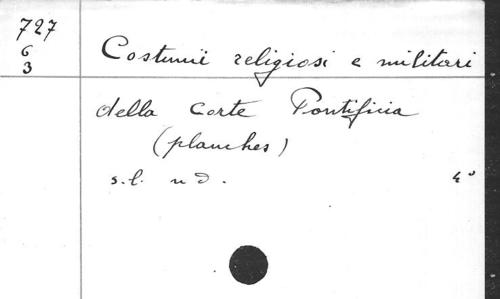 727
6
3
Costumi religiosi e militari
della Corte Pontificia
(planches)
s.l. n d. 4°